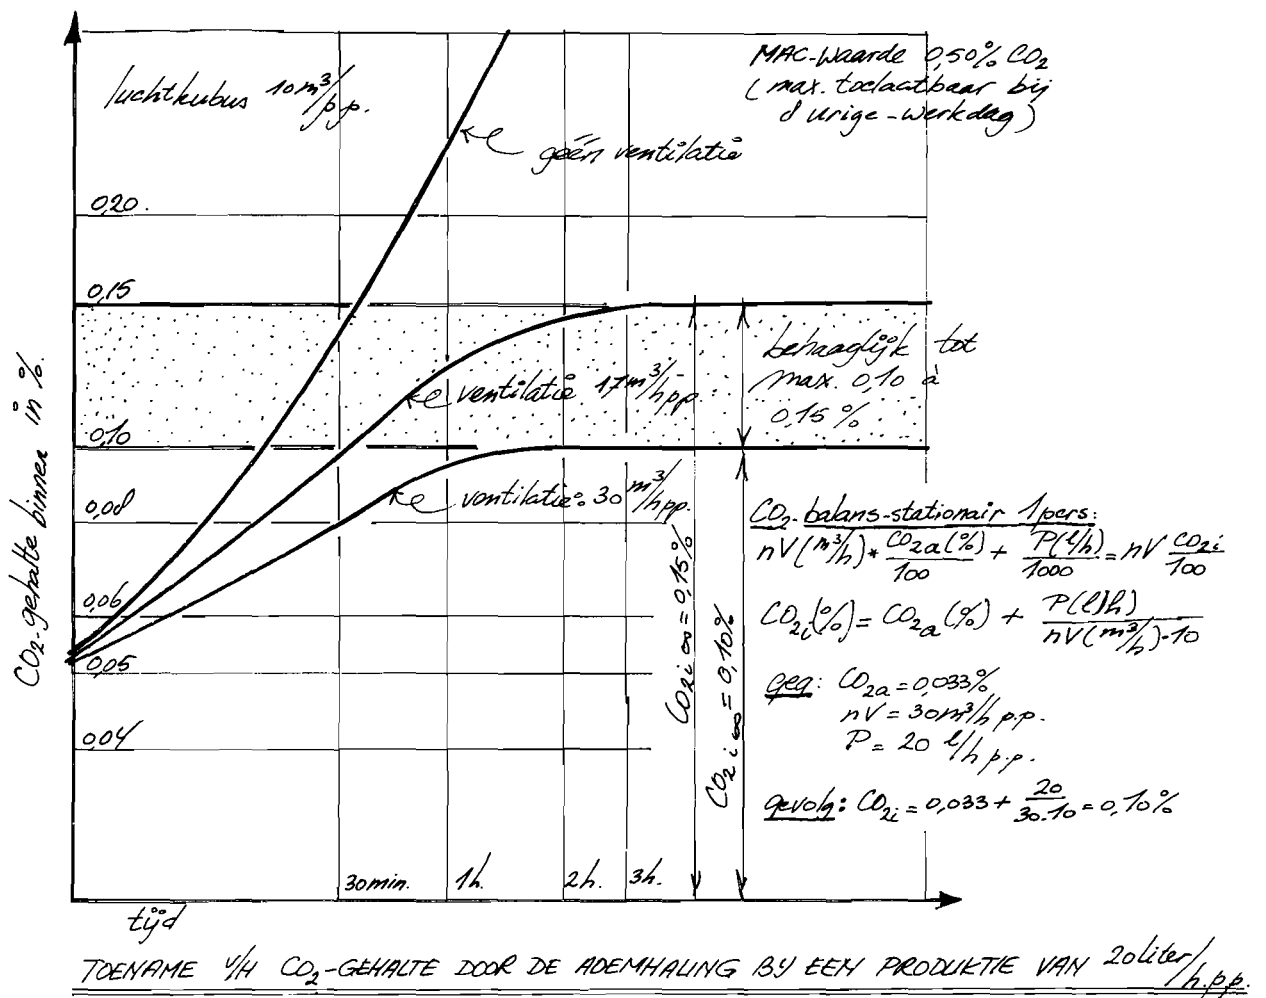 luchtkubus 10 m³/p.p.
MAC-Waarde 0,50% CO₂
(max. toelaatbaar bij
8 urige-werkdag)
géén ventilatie
0,20.
0,15
behaaglijk tot
max. 0,10 à
0,15 %
ventilatie 17 m³/h p.p.
0,10
ventilatie: 30 m³/h p.p.
0,08
0,06
0,05
0,04
CO₂-gehalte binnen in %.
CO₂ᵢ∞ = 0,15%
CO₂ᵢ∞ = 0,10%
CO₂-balans-stationair 1 pers:
nV(m³/h)* CO₂a(%)/100 + P(l/h)/1000 = nV CO₂i/100
CO₂i(%) = CO₂a(%) + P(l/h)/nV(m³/h)·10
geg: CO₂a = 0,033%
nV = 30m³/h p.p.
P = 20 l/h p.p.
gevolg: CO₂i = 0,033 + 20/30.10 = 0,10%
30 min. 1h. 2h. 3h.
tijd
TOENAME V/H CO₂-GEHALTE DOOR DE ADEMHALING BY EEN PRODUKTIE VAN 20 liter/h.p.p.